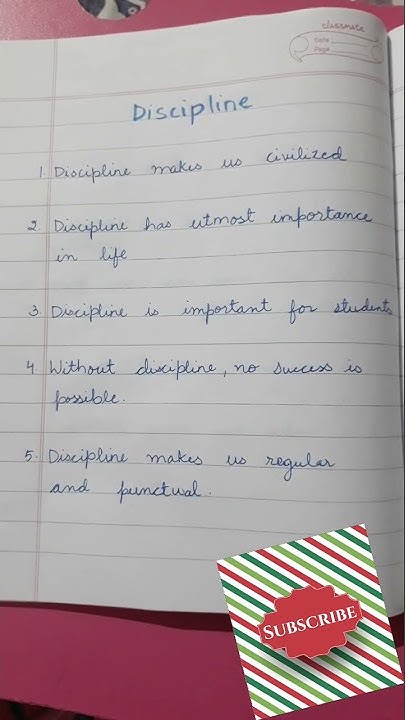 classmate
Date
Page
Discipline
1. Discipline makes us civilized
2. Discipline has utmost importance
in life
3. Discipline is important for students
4. Without discipline, no success is
possible.
5. Discipline makes us regular
and punctual.
SUBSCRIBE